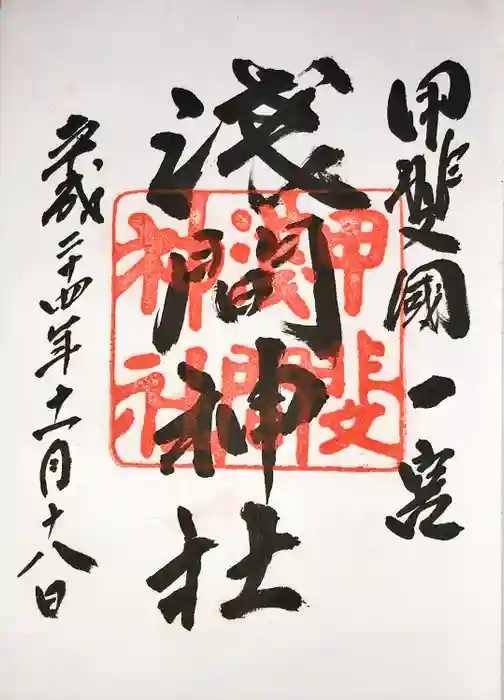 甲斐國一宮
浅間神社
甲斐
浅間
神社
平成二十四年十一月十八日